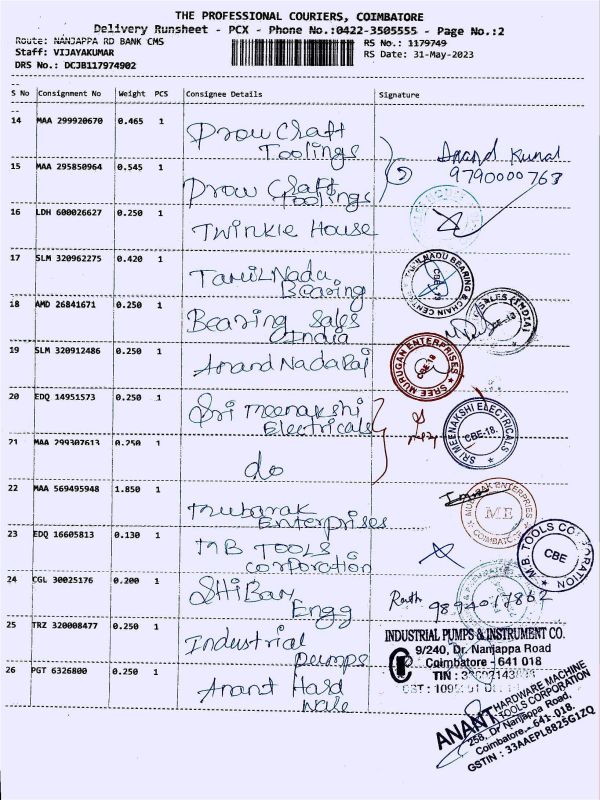 THE PROFESSIONAL COURIERS, COIMBATORE
Delivery Runsheet - PCX - Phone No.:0422-3505555 - Page No.:2
Route: NANJAPPA RD BANK CMS
RS No.: 1179749
Staff: VIJAYAKUMAR
RS Date: 31-May-2023
DRS No.: DCJB117974902
S No Consignment No Weight PCS Consignee Details Signature
14 MAA 299920670 0.465 1 Prow Craft Toolings
Anand Kumar
9790000763
15 MAA 295850964 0.545 1 Prow Craft Toolings
16 LDH 600026627 0.250 1 Twinkle House
17 SLM 320962275 0.420 1 TamilNadu Bearing
TAMILNADU BEARING & CHAIN CENTRE
CBE-18
18 AMD 26841671 0.250 1 Bearing Sales India
SALES (INDIA)
CBE-18
19 SLM 320912486 0.250 1 Anand Nadaraj
SREE MURUGAN ENTERPRISES
CBE-18
20 EDQ 14951573 0.250 1 Sri Meenakshi Electricals
SRI MEENAKSHI ELECTRICALS
CBE-18.
21 MAA 299307613 0.250 1 do
22 MAA 569495948 1.850 1 Mubarak Enterprises
MUBARAK ENTERPRISES
ME
COIMBATORE
23 EDQ 16605813 0.130 1 M B Tools Corporation
M.B. TOOLS CORPORATION
CBE
24 CGL 30025176 0.200 1 Engg
9894017862
25 TRZ 320008477 0.250 1 Industrial Pumps
INDUSTRIAL PUMPS & INSTRUMENT CO.
9/240, Dr. Nanjappa Road
Coimbatore - 641 018
TIN :
26 PGT 6326800 0.250 1 Anant Hard Ware
ANANT HARDWARE MACHINE TOOLS CORPORATION
258, Dr Nanjappa Road,
Coimbatore - 641-018.
GSTIN : 33AAEPL8825G1ZQ